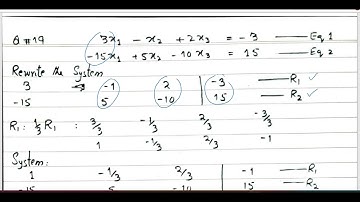 Q # 19 3x₁ - x₂ + 2x₃ = -3 — Eq 1
-15x₁ + 5x₂ - 10x₃ = 15 — Eq 2
Rewrite the System
3 -1 2 | -3 — R₁ ✓
-15 5 -10 | 15 — R₂ ✓
R₁: 1/3 R₁ : 3/3 -1/3 2/3 -3/3
1 -1/3 2/3 -1
System:
1 -1/3 2/3 | -1 — R₁
-15 5 -10 | 15 R₂